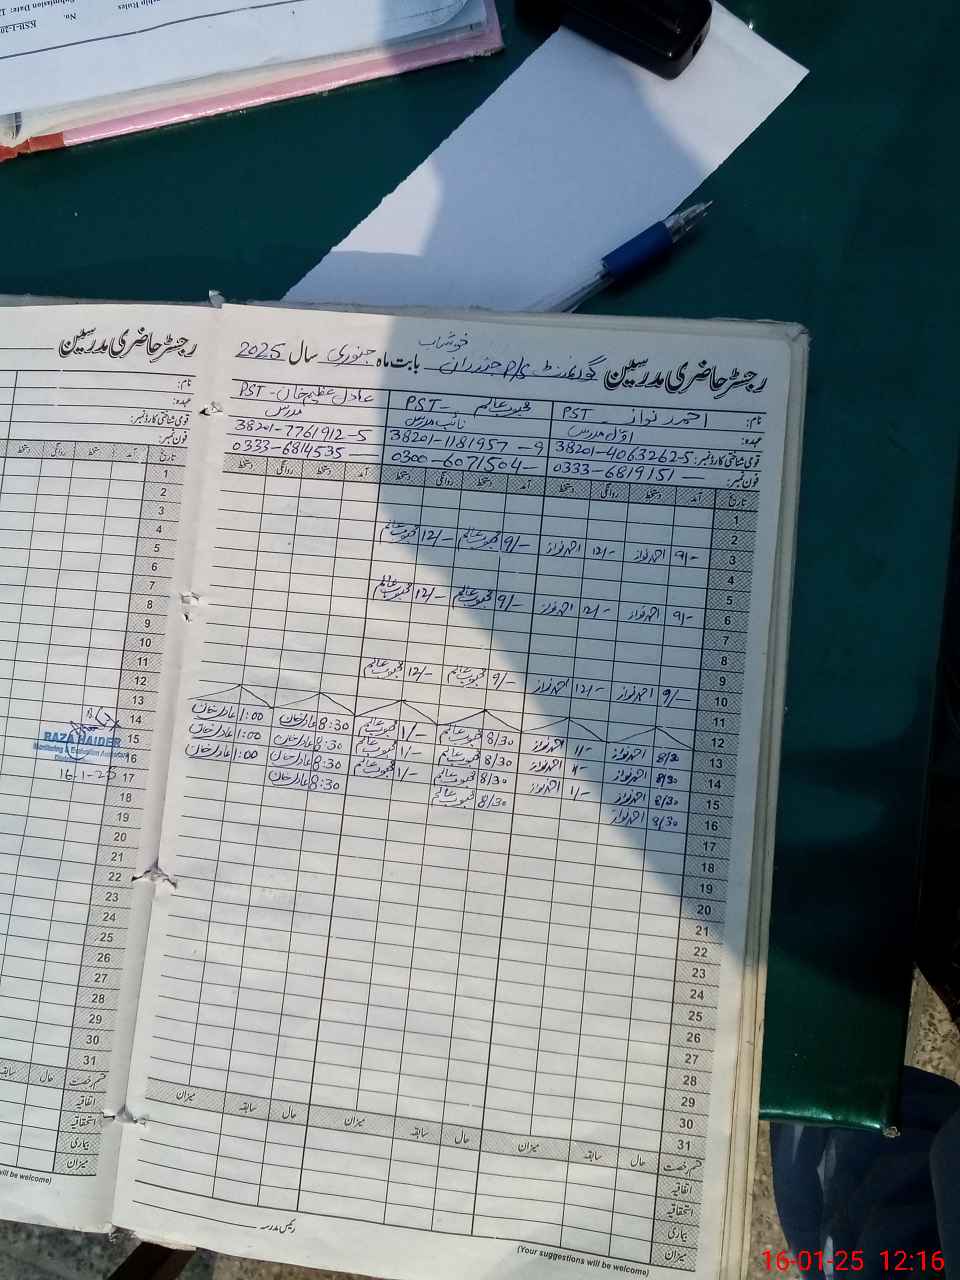 No.
KSH-1-20
رجسٹر حاضری مدرسین گورنمنٹ P/S جندران خوشاب بابت ماہ جنوری سال 2025
نام: احمد نواز PST محبوب عالم PST عادل عظیم خان PST
عہدہ: اوّل مدرس نائب مدرس مدرس
قومی شناختی کارڈ نمبر: 38201-4063262-5 38201-1181957-9 38201-7761912-5
فون نمبر: 0333-6819151 0300-6071504 0333-6814535
تاریخ آمد دستخط روانگی دستخط آمد دستخط روانگی دستخط آمد دستخط روانگی دستخط
1
2
3 9/- احمد نواز 12/- احمد نواز 9/- محبوب عالم 12/- محبوب عالم
4
5
6 9/- احمد نواز 12/- احمد نواز 9/- محبوب عالم 12/- محبوب عالم
7
8
9
10 9/- احمد نواز 12/- احمد نواز 9/- محبوب عالم 12/- محبوب عالم
11
12
13 8/30 احمد نواز 1/- احمد نواز 8/30 محبوب عالم 1/- محبوب عالم 8:30 عادل خان 1:00 عادل خان
14 8/30 احمد نواز احمد نواز 8/30 محبوب عالم 1/- محبوب عالم 8:30 عادل خان 1:00 عادل خان
15 8/30 احمد نواز 1/- احمد نواز 8/30 محبوب عالم 1/- محبوب عالم 8:30 عادل خان 1:00 عادل خان
16 8/30 احمد نواز 8/30 محبوب عالم 8:30 عادل خان
17
18
19
20
21
22
23
24
25
26
27
28
29
30
31
قسم رخصت حال سابقہ میزان حال سابقہ میزان حال سابقہ میزان
اتفاقیہ
استحقاقیہ
بیماری
میزان
رئیس مدرسہ
(Your suggestions will be welcome)
رجسٹر حاضری مدرسین
نام:
عہدہ:
قومی شناختی کارڈ نمبر:
فون نمبر:
تاریخ آمد دستخط روانگی دستخط
1
2
3
4
5
6
7
8
9
10
11
12
13
14
15
16
17
18
19
20
21
22
23
24
25
26
27
28
29
30
31
RAZA HAIDER
Monitoring & Evaluation Assistant
16-1-25
قسم رخصت حال سابقہ
اتفاقیہ
استحقاقیہ
بیماری
میزان
will be welcome)
16-01-25 12:16